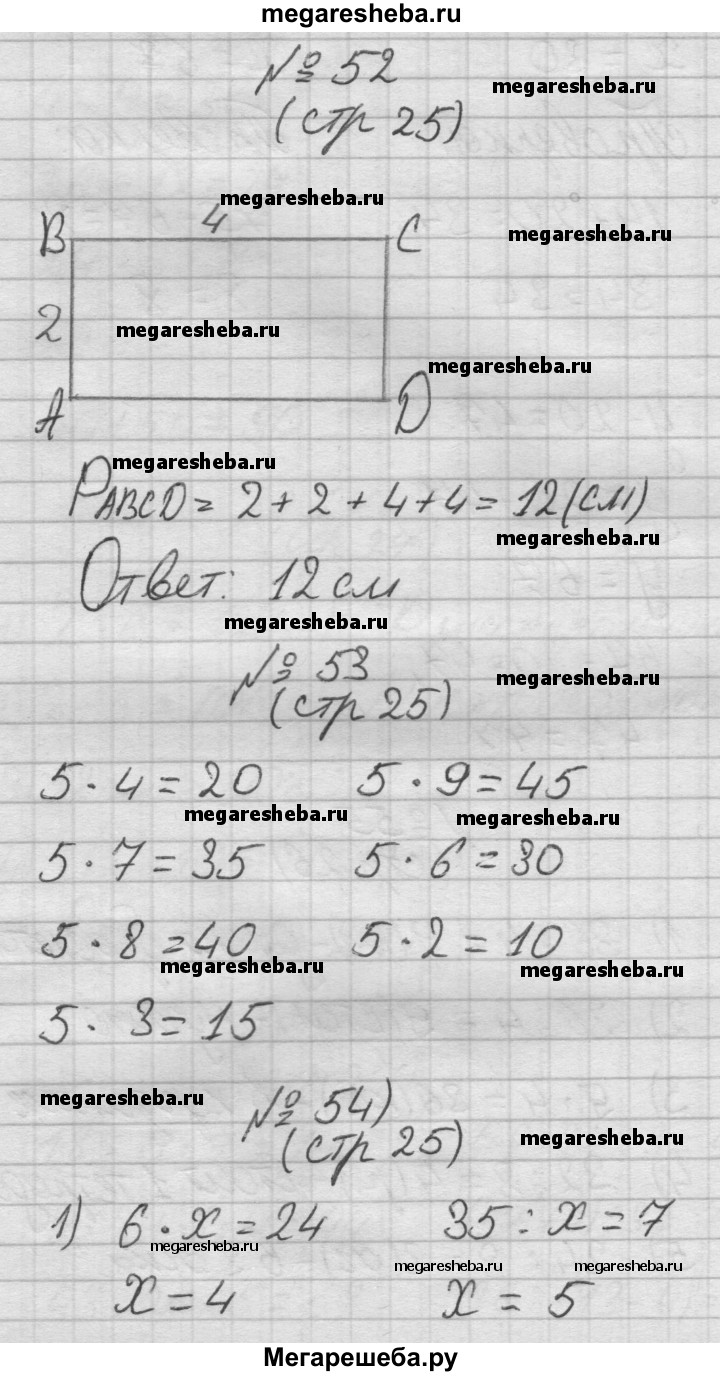 megaresheba.ru
№ 52
megaresheba.ru
(стр 25)
megaresheba.ru
4
B
C
megaresheba.ru
2
megaresheba.ru
megaresheba.ru
A
D
megaresheba.ru
PABCD = 2 + 2 + 4 + 4 = 12 (см)
megaresheba.ru
Ответ: 12 см
megaresheba.ru
№ 53
megaresheba.ru
(стр 25)
5 · 4 = 20 5 · 9 = 45
megaresheba.ru megaresheba.ru
5 · 7 = 35 5 · 6 = 30
5 · 8 = 40 5 · 2 = 10
megaresheba.ru megaresheba.ru
5 · 3 = 15
megaresheba.ru
№ 54)
(стр 25)
megaresheba.ru
1) 6 · x = 24 35 : x = 7
megaresheba.ru
megaresheba.ru megaresheba.ru
x = 4 x = 5
Мегарешеба.ру